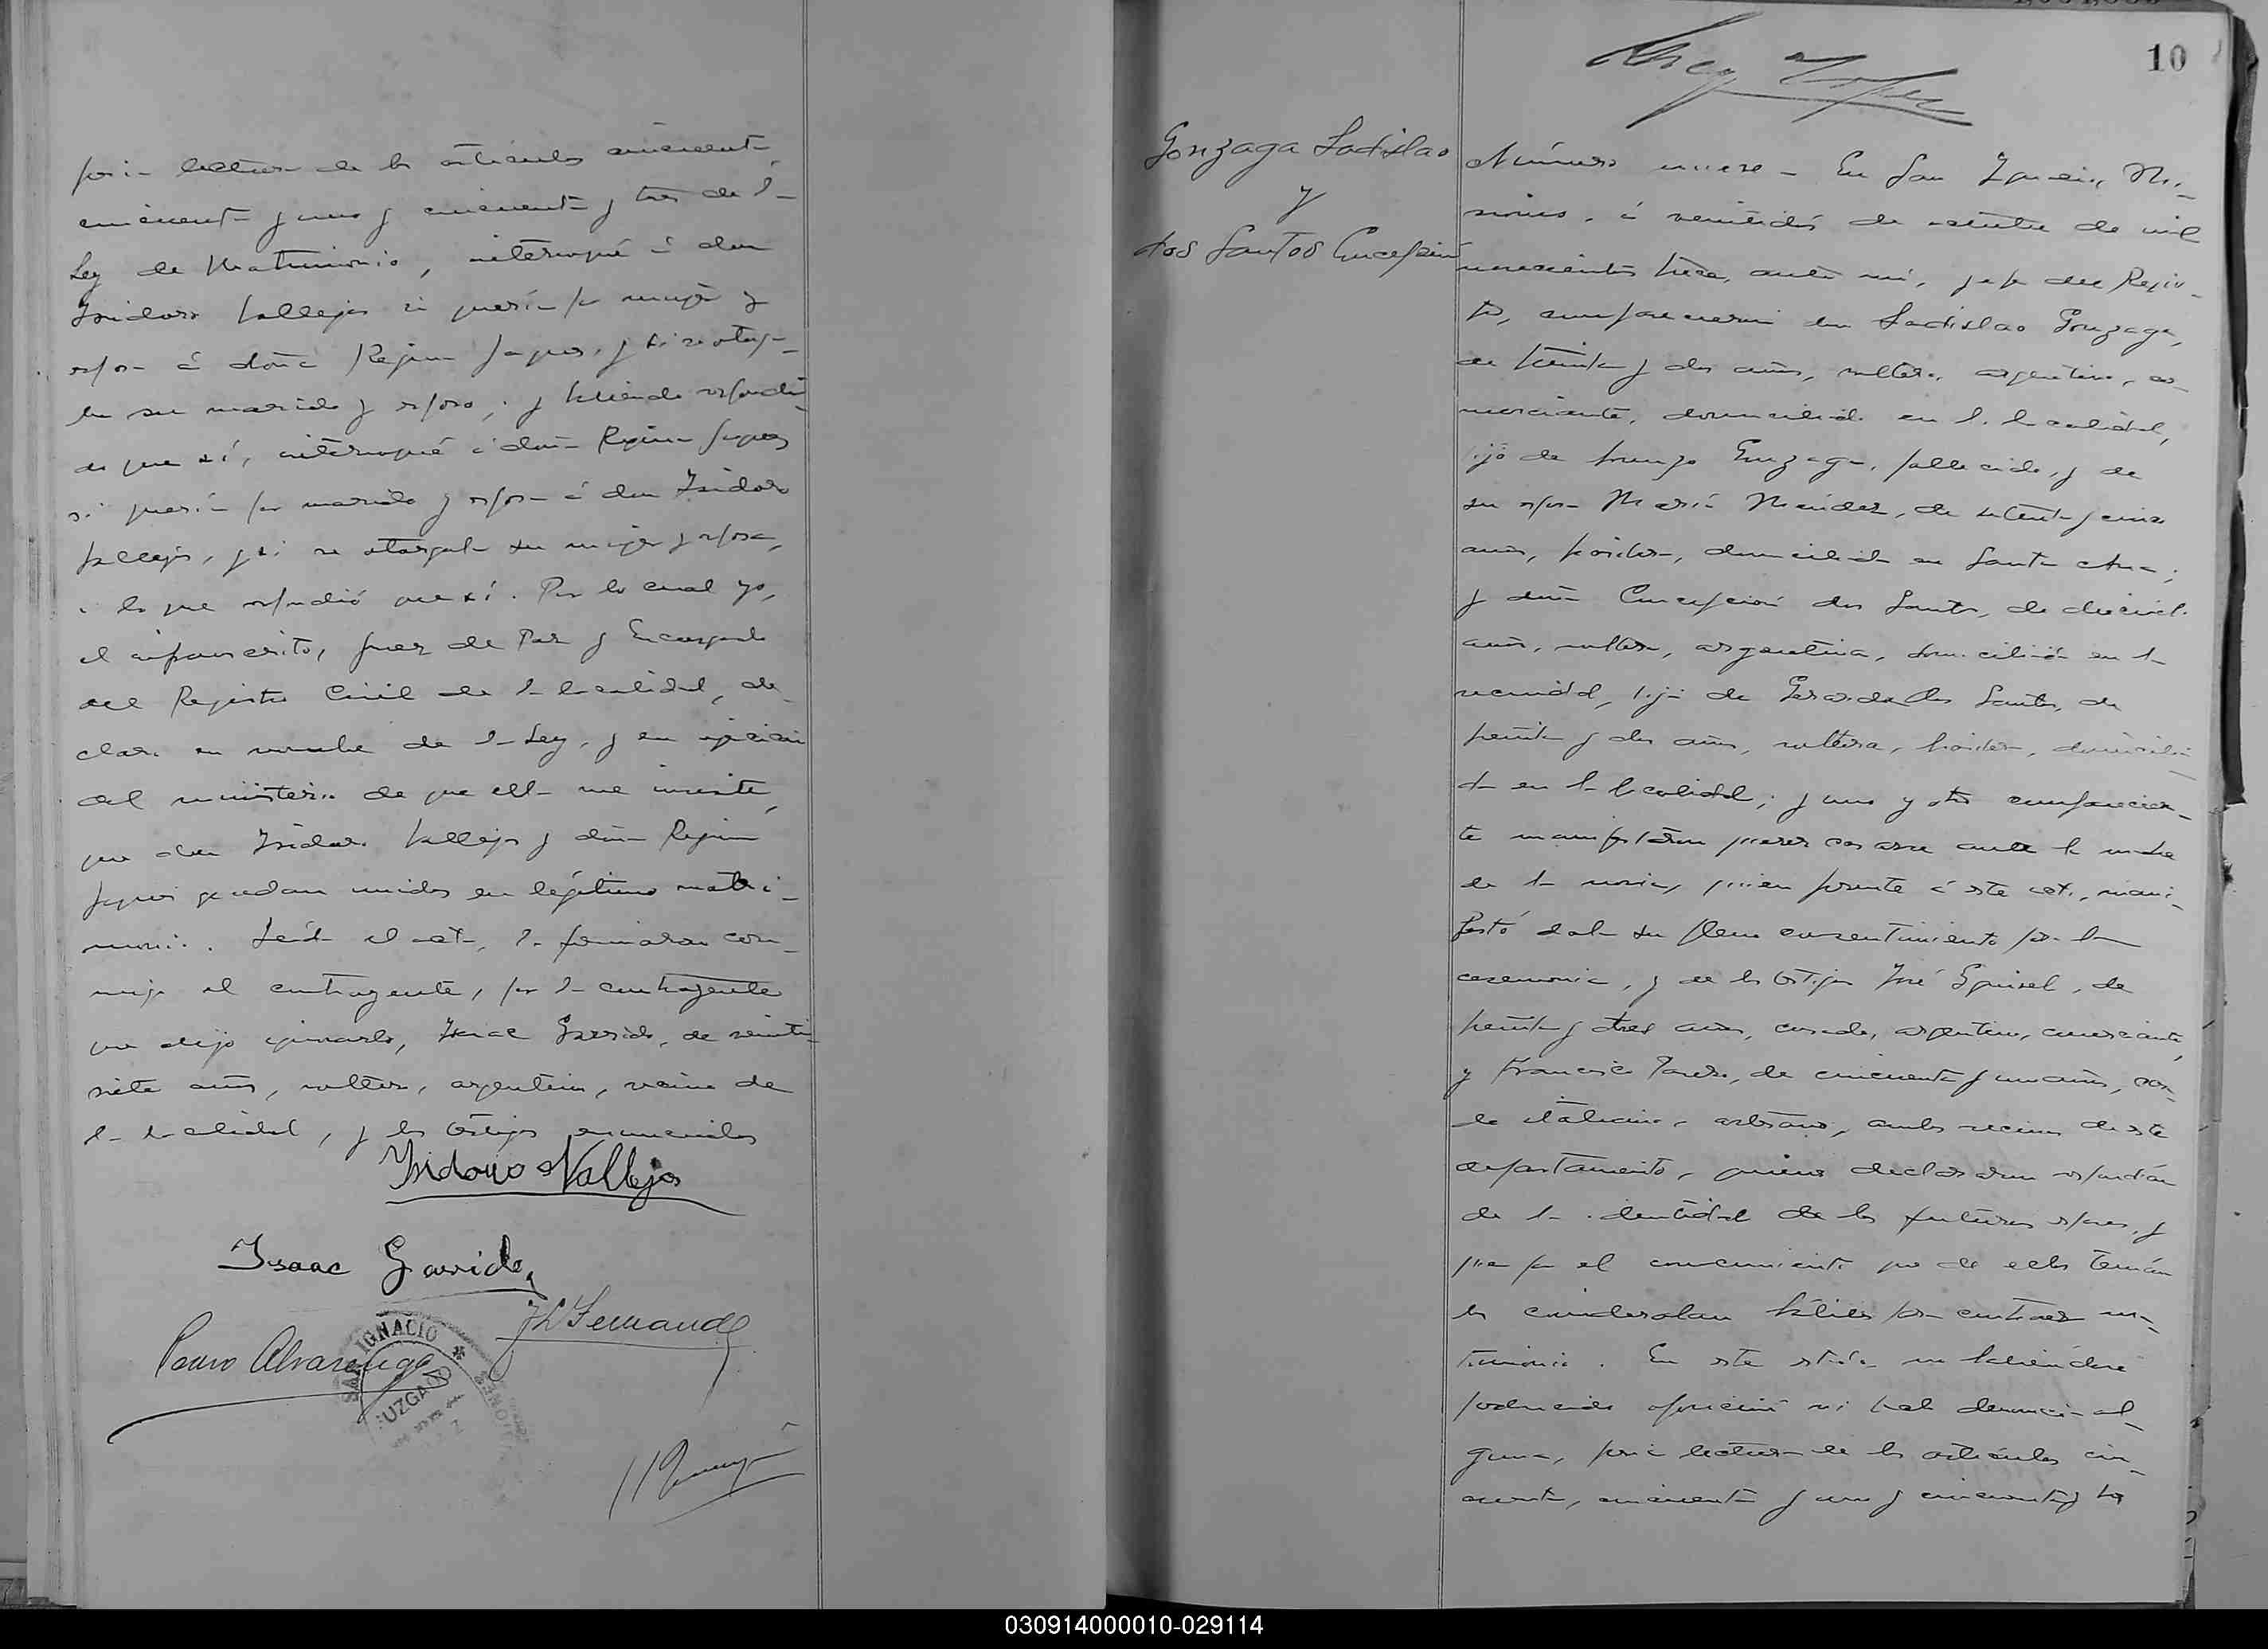 por la lectura de los artículos cincuenta,
cincuenta y uno y cincuenta y tres de la
Ley de Matrimonio, interrogué á don
Isidoro Vallejos si quería por mujer y
esposa á doña Regina y si se otorga-
ba su marido y esposo, y habiendo respondi-
do que sí, interrogué á doña Regina
si quería por marido y esposo á don Isidoro
Vallejos, y si se otorgaba su mujer y esposa,
á lo que respondió que sí. Por lo cual yo,
el infrascrito, Juez de Paz y Encargado
del Registro Civil de la localidad, de-
claro en nombre de la Ley, y en ejercicio
del ministerio de que ella me inviste,
que don Isidoro Vallejos y doña Regina
quedan unidos en legítimo matri-
monio. Leída el acta, la firmaron con-
migo el contrayente, por la contrayente
que dijo ignorarlo, Isaac Garrido, de veinti-
siete años, soltero, argentino, vecino de
la localidad, y los testigos enunciados
Isidoro Vallejos
Isaac Garrido
Pedro Alvarenga
SAN IGNACIO * MISIONES
JUZGADO
10
Gonzaga Ladislao
y
dos Santos Concepción
Número nueve - En San Ignacio, Mi-
siones, á veintidós de octubre de mil
novecientos trece, ante mí, Jefe del Regis-
tro, comparecieron don Ladislao Gonzaga,
de treinta y dos años, soltero, argentino, co-
merciante, domiciliado en la localidad,
hijo de Gonzaga, fallecido, y de
su esposa María Mendez, de setenta y cinco
años, domiciliada en Santa Ana;
y doña Concepción dos Santos, de
años, soltera, argentina, domiciliada en la
vecindad, hija de Gerarda dos Santos, de
treinta y dos años, soltera, domicilia-
da en la localidad; y uno y otro comparecien-
te manifestaron querer casarse ante la madre
de la novia, quien presente á este acto, mani-
festó daba su pleno consentimiento para la
ceremonia, y de los testigos José Esquivel, de
treinta y tres años, casado, argentino, comerciante,
y Francisco de cincuenta y un años, casa-
do, italiano, artesano, ambos vecinos de este
departamento, quienes declararon respondían
de la identidad de los futuros esposos, y
que por el conocimiento que de ellos tenían
los consideraban hábiles para contraer ma-
trimonio. En este estado no habiéndose
producido oposición ni habido denuncia al-
guna, por la lectura de los artículos cin-
cuenta, cincuenta y uno y cincuenta y tres
030914000010-029114